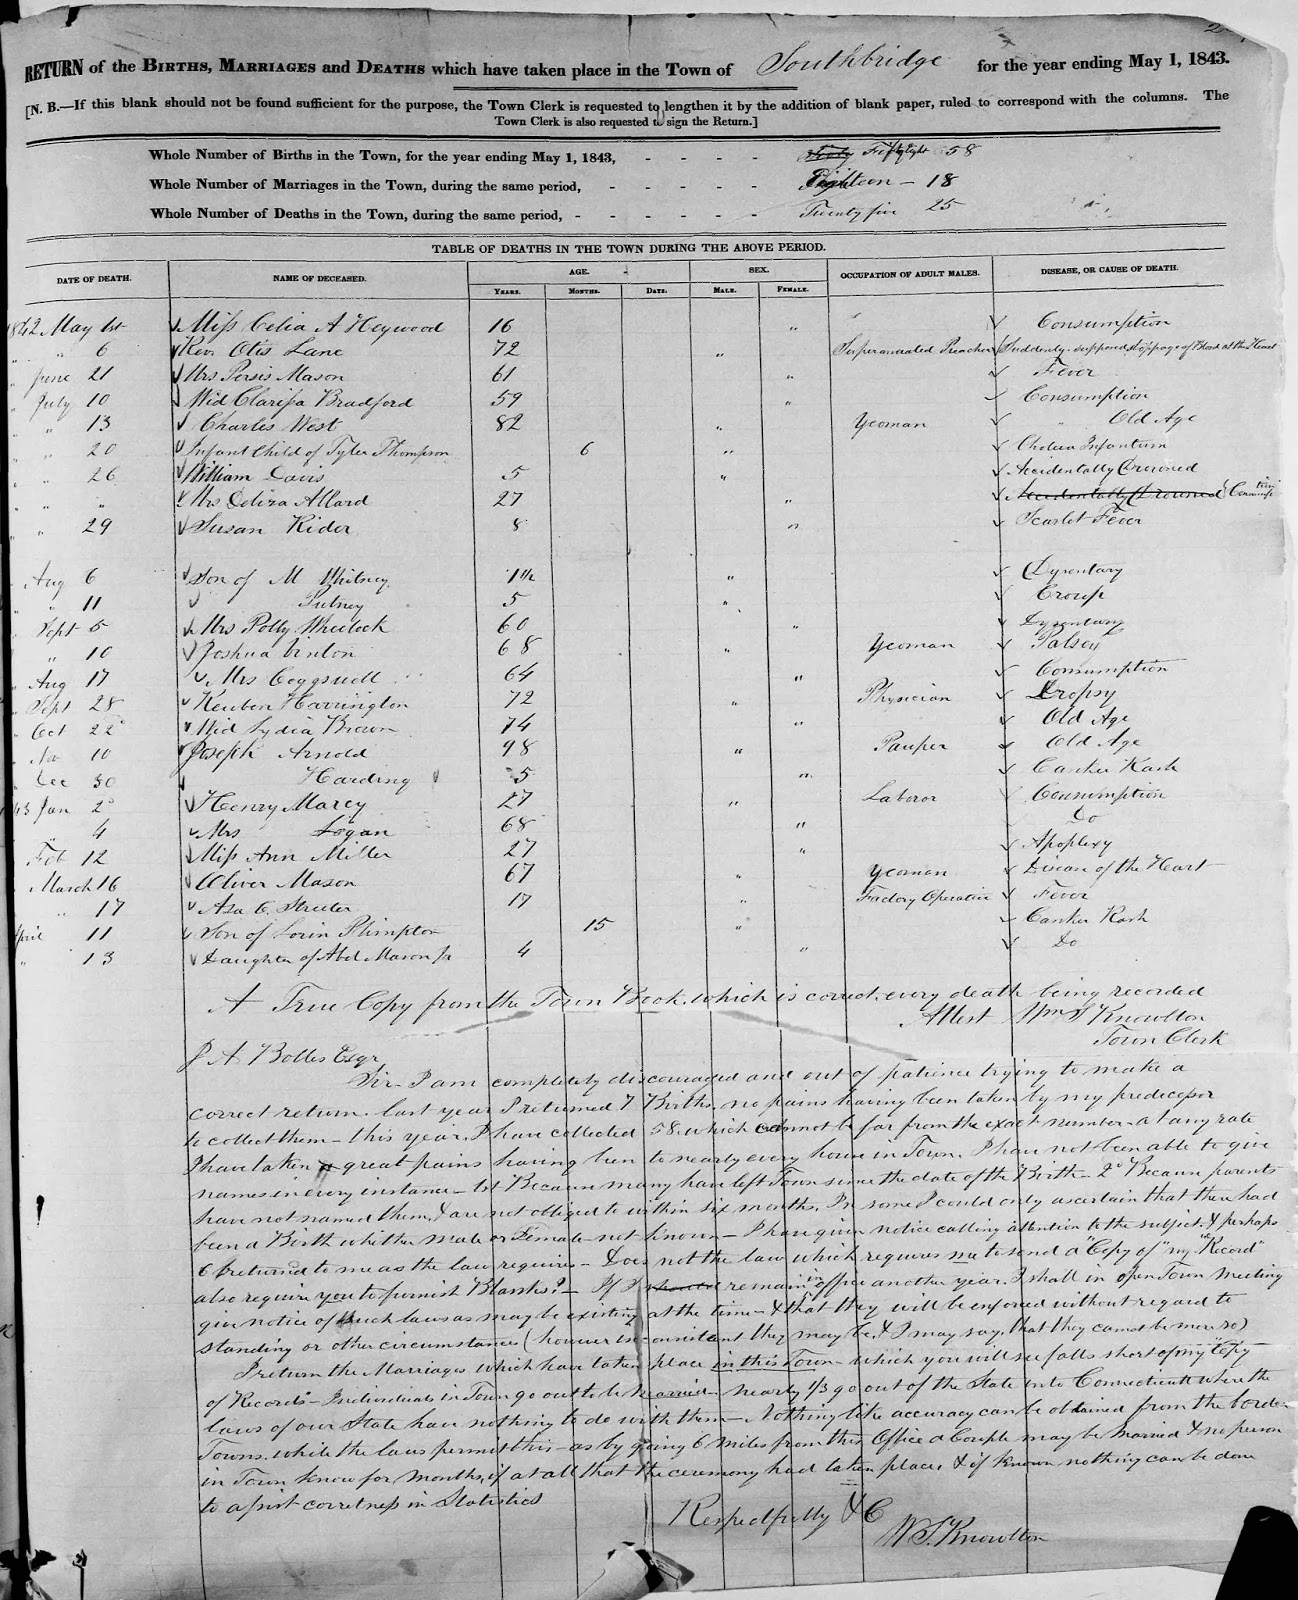 RETURN of the BIRTHS, MARRIAGES and DEATHS which have taken place in the Town of Southbridge for the year ending May 1, 1843.
[N. B.—If this blank should not be found sufficient for the purpose, the Town Clerk is requested to lengthen it by the addition of blank paper, ruled to correspond with the columns. The
Town Clerk is also requested to sign the Return.]
Whole Number of Births in the Town, for the year ending May 1, 1843, - - - - Fifty eight 58
Whole Number of Marriages in the Town, during the same period, - - - - - Eighteen - 18
Whole Number of Deaths in the Town, during the same period, - - - - - - Twenty five 25
TABLE OF DEATHS IN THE TOWN DURING THE ABOVE PERIOD.
DATE OF DEATH. NAME OF DECEASED. AGE. SEX. OCCUPATION OF ADULT MALES. DISEASE, OR CAUSE OF DEATH.
YEARS. MONTHS. DAYS. MALE. FEMALE.
1842 May 1st Miss Celia A Heywood 16 " Consumption
" " 6 Rev Otis Lane 72 " Superanuated Preacher Suddenly supposed stoppage of Blood at the Heart
" June 21 Mrs Persis Mason 61 " Fever
" July 10 Wid Clarissa Bradford 59 " Consumption
" " 13 Charles West 82 " Yeoman Old Age
" " 20 Infant Child of Tyler Thompson 6 " Cholera Infantum
" " 26 William Davis 5 " Accidentally Drowned
" " " Mrs Allard 27 " Accidentally Drowned Consumption
" " 29 Susan Rider 8 " Scarlet Fever
" Aug 6 Son of M Whitney 1½ " Dysentary
" " 11 Putney 5 " Croup
" Sept 5 Mrs Polly Wheelock 60 " Dysentary
" " 10 Joshua Vinton 68 " Yeoman Palsey
" Aug 17 Mrs Coggswell 64 " Consumption
" Sept 28 Reuben Harrington 72 " Physician Dropsy
" Oct 22 Wid Lydia Brown 74 " Old Age
" Nov 10 Joseph Arnold 98 " Pauper Old Age
" Dec 30 Harding 5 " Canker Rash
43 Jan 2 Henry Marcy 27 " Laborer Consumption
" 4 Mrs Logan 68 " Do
Feb 12 Miss Ann Miller 27 " Apoplexy
March 16 Oliver Mason 67 " Yeoman Disease of the Heart
" 17 Asa C. Streeter 17 " Factory Operative Fever
April 11 Son of Lorin Plimpton 15 " Canker Rash
" 13 Daughter of Abel Mason Jr 4 " Do
A True Copy from the Town Book, which is correct, every death being recorded
Attest Wm S Knowlton
Town Clerk
J A Bolles Esqr
Sir I am completely discouraged and out of patience trying to make a
correct return. last year I returned 7 Births, no pains having been taken by my predecesor
to collect them - this year, I have collected 58 which cannot be far from the exact number - at any rate
I have taken great pains having been to nearly every house in Town. I have not been able to give
names in every instance - 1st Because many have left Town since the date of the Birth - 2d Because parents
have not named them, & are not obliged to within six months. In some I could only ascertain that there had
been a Birth whether male or Female - not known - I have given notice calling attention to the subject, & perhaps
6 returned to me as the law requires - Does not the law which requires me to send a "Copy of" my "Record"
also require you to furnish Blanks? - If I should remain in office another year, I shall in open Town meeting
give notice of such laws as may be existing at the time - & that they will be enforced without regard to
standing or other circumstances (however inconsistent they may be, & I may say, that they cannot be more so)
I return the Marriages which have taken place in this Town - which you will see falls short of my "Copy
of Records" Individuals in Town go out to be married - nearly 1/3 go out of the State into Connecticut where the
laws of our State have nothing to do with them - Nothing like accuracy can be obtained from the border
Towns, while the laws permit this - as by going 6 miles from this Office a Couple may be married & no person
in Town know for months, if at all that the ceremony had taken place, & if known nothing can be done
to assist corretness in Statistics
Respectfully &C
W. S. Knowlton